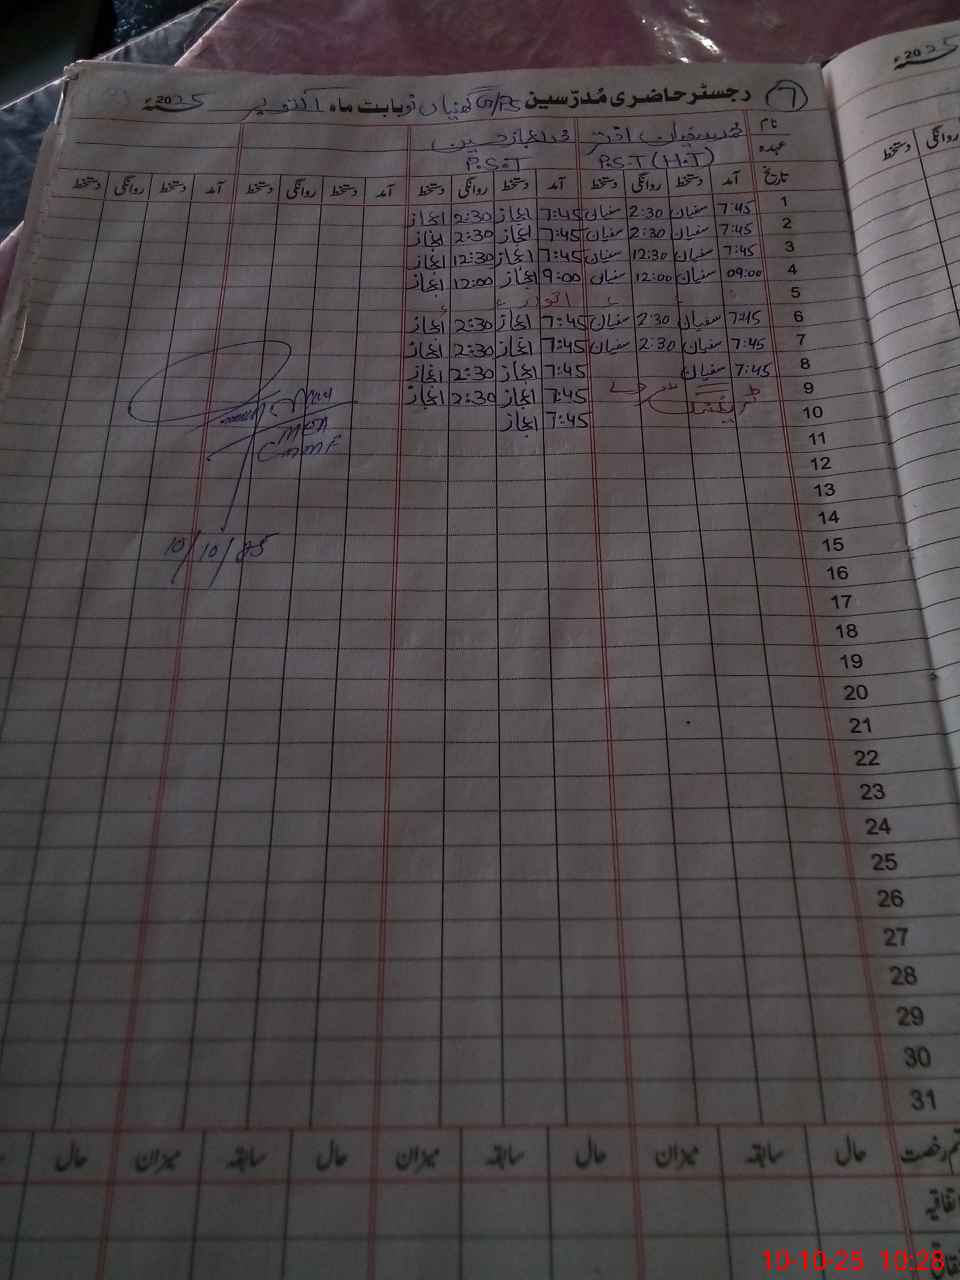 رجسٹر حاضری مُدرّسین G/PS گھنیاں نو بابت ماہ اکتوبر 2025
2025
نام
عہدہ
محمد سفیان اختر محمد اعجاز حسین
P.S.T (H.T) P.S.T
تاریخ آمد دستخط روانگی دستخط آمد دستخط روانگی دستخط آمد دستخط روانگی دستخط آمد دستخط روانگی دستخط
روانگی دستخط
1 7:45 سفیان 2:30 سفیان 7:45 اعجاز 2:30 اعجاز
2 7:45 سفیان 2:30 سفیان 7:45 اعجاز 2:30 اعجاز
3 7:45 سفیان 12:30 سفیان 7:45 اعجاز 12:30 اعجاز
4 09:00 سفیان 12:00 سفیان 9:00 اعجاز 12:00 اعجاز
5 اتوار
6 7:45 سفیان 2:30 سفیان 7:45 اعجاز 2:30 اعجاز
7 7:45 سفیان 2:30 سفیان 7:45 اعجاز 2:30 اعجاز
8 7:45 سفیان 7:45 اعجاز 2:30 اعجاز
9 7:45 اعجاز 2:30 اعجاز
10 7:45 اعجاز
11
12
13
14
15
16
17
18
19
20
21
22
23
24
25
26
27
28
29
30
31
10/10/25
قسم رخصت حال سابقہ میزان حال سابقہ میزان حال سابقہ میزان حال
اتفاقیہ
10-10-25 10:28